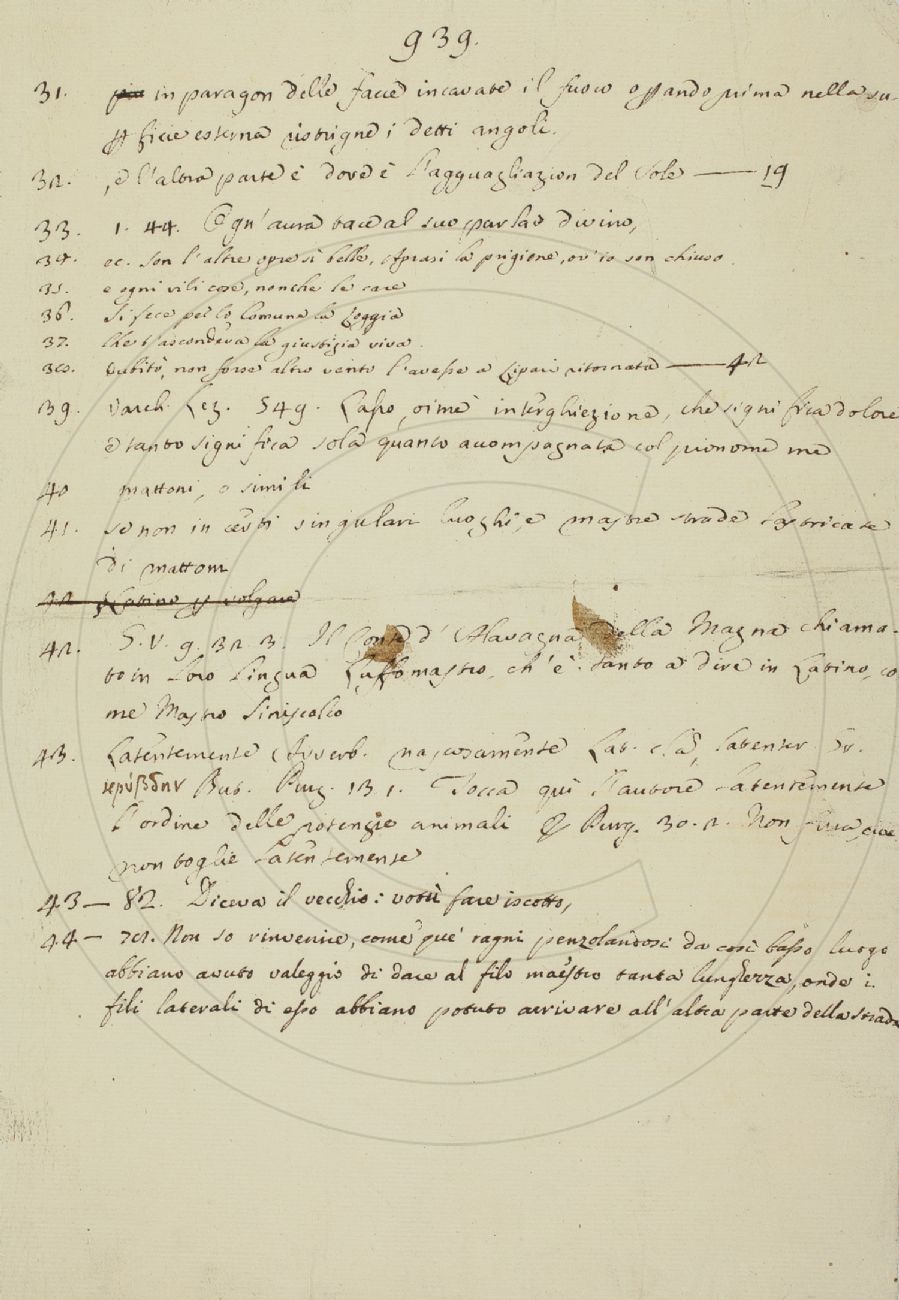 939.
31. in paragon delle facce incavate il fuoco oprando prima nella su-
perficie esterna ristrigne i detti angoli.
32. , e l'altra parte è dove è l'agguagliazion del Sole — 19
33. 1. 44. Ogn' aura tace al suo parlar divino,
34. ec. Son l'altre opre sì belle, Aprasi la prigione, ov' io son chiuso.
35. e ogni vili cose, nonche le care
36. Si fece per lo Comune la Loggia
37. Che t'ascondeva la giustizia viva.
38. subito, non forse altro vento l'avesse a Lipari ritornata — 42
39. Varch. Lez. 549. Lasso, oimè interghiezione, che significa dolore
e tanto significa sola quanto accompagnata col pronome me
40 mattoni, o simili
41. se non in certi singulari luoghi, e mastre strade lastricate
di mattoni
42. Latino e volgare
42. G. V. 9. 32. 3. Il Conte d' Alavagna della Magna chiama-
to in loro lingua Luffomastro, ch' è tanto a dire in Latino, co
me Mastro Siniscalco
43. Latentemente Avverb. nascosamente Lat. clă, latenter. Gr.
κρύβδην But. Purg. 13. 1. Tocca qui l'autore latentemente
l'ordine delle potenzie animali & Purg. 30. 2. Non fura, cioè
non toglie latentemente
43 — 82. Diceva il vecchio: votù fare iscotto,
44 — 72. Non so rinvenire, come que' ragni penzolandosi da così basso luogo
abbiano avuto valeggio di dare al filo maestro tanta lunghezza, onde i
fili laterali di esso abbiano potuto arrivare all' altra parte della strada